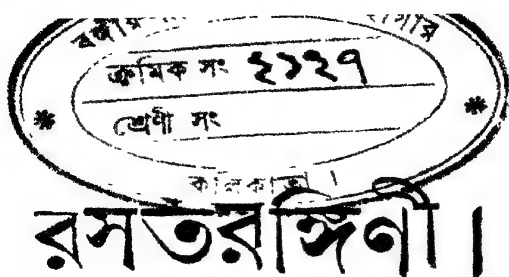 বঙ্গীয়
ক্রমিক সং ২১২৭
শ্রেণী সং
কলিকাতা ।
রসতরঙ্গিণী ।